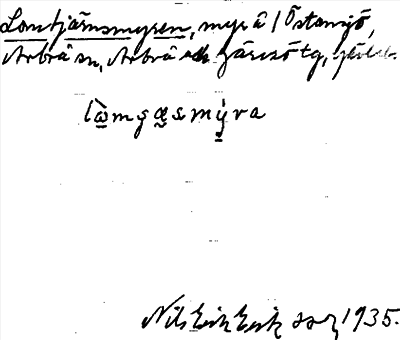 Lomtjärnsmyren, myr å / Östansjö,
Arbrå sn, Arbrå och Järvsö tg, Hälsl.
làmçæsmýra
Nils Erik Eriksson 1935.